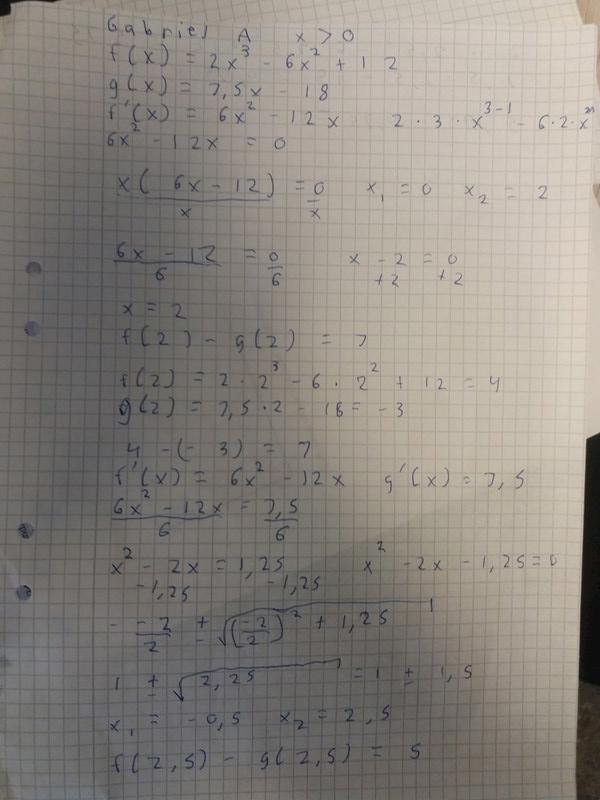 Gabriel A x > 0
f(x) = 2x³ - 6x² + 12
g(x) = 7,5x - 18
f'(x) = 6x² - 12x 2·3·x³⁻¹ - 6·2·x²⁻¹
6x² - 12x = 0
x(6x-12)/x = 0/x x₁ = 0 x₂ = 2
6x - 12/6 = 0/6 x - 2 = 0
+2 +2
x = 2
f(2) - g(2) = 7
f(2) = 2·2³ - 6·2² + 12 = 4
g(2) = 7,5·2 - 18 = -3
4 - (-3) = 7
f'(x) = 6x² - 12x g'(x) = 7,5
6x² - 12x/6 = 7,5/6
x² - 2x = 1,25 x² - 2x - 1,25 = 0
-1,25 -1,25
- -2/2 ± √(-2/2)² + 1,25
1 ± √2,25 = 1 ± 1,5
x₁ = -0,5 x₂ = 2,5
f(2,5) - g(2,5) = 5